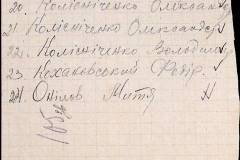 20. Колісніченко Олександр
21. Колісніченко Олександр
22. Колісніченко Володимир
23. Кохановський Федір.
24. Онілов Митя